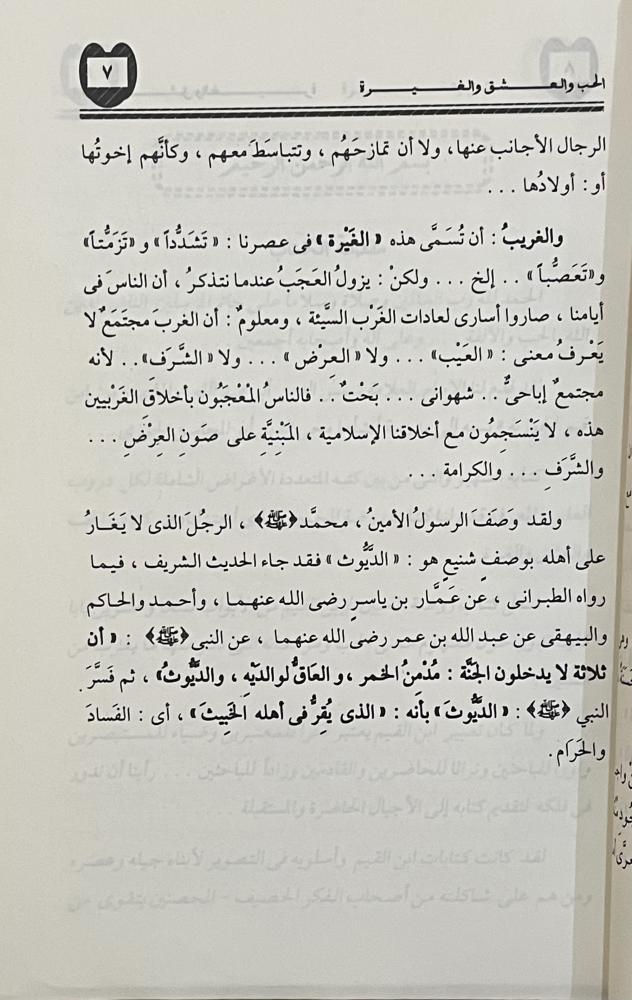 ٧
الحب والعشق والغيرة
الرجال الأجانب عنها، ولا أن تمازحَهُم ، وتتباسَطَ معهم ، وكأنَّهم إخوتُها
أو : أولادُها . . .
والغريبُ : أن تُسَمَّى هذه « الغَيْرة » فى عصرنا : « تَشَدُّداً » و « تَزَمُّتاً »
و« تَعَصُّباً » . . إلخ . . . ولكنْ : يزولُ العَجَبُ عندما نتذكرُ ، أن الناسَ فى
أيامنا ، صاروا أسارى لعادات الغَرْب السيَّئة ، ومعلومٌ : أن الغربَ مجتَمَعٌ لا
يَعْرفُ معنى : « العَيْب» . . . ولا « العِرْض » . . . ولا « الشَّرَف» . . لأنه
مجتمعٌ إباحىٌّ . . شهوانى . . . بَحْتٌ . . فالناسُ المُعْجَبُون بأخلاقِ الغَرْبيين
هذه ، لا يَنْسَجِمُون مع أخلاقنا الإسلامية ، المَبْنِيَّةِ على صَونِ العِرْضِ . . .
والشَّرَفِ . . . والكرامة . . .
ولقد وَصَفَ الرسولُ الأمينُ ، محمَّد ﴿ﷺ﴾ ، الرجُلَ الذى لا يَغَارُ
على أهله بوصفٍ شنيعٍ هو : « الدَّيُّوث » فقد جاء الحديث الشريف ، فيما
رواه الطبرانى ، عن عَمَّار بن ياسرٍ رضى الله عنهما ، وأحمد والحاكم
والبيهقى عن عبد الله بن عمر رضى الله عنهما ، عن النبى ﴿ﷺ﴾ : « أن
ثلاثة لا يدخلون الجَنَّة : مُدْمِنُ الخمر ، و العَاقُّ لوالدَيْهِ ، والدَّيُّوثُ» ، ثم فَسَّرَ
النبي ﴿ﷺ﴾ : « الدَّيُّوثَ» بأنه : « الذى يُقِرُّ فى أهله الخَبِيثَ» ، أى : الفَسادَ
والحَرَام .